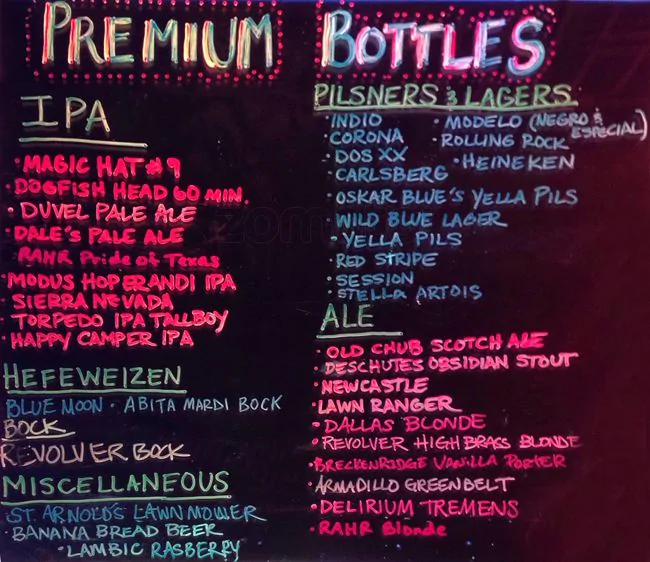 PREMIUM BOTTLES
IPA
• MAGIC HAT #9
• DOGFISH HEAD 60 MIN.
• DUVEL PALE ALE
• DALE'S PALE ALE
RAHR Pride of Texas
• MODUS HOPERANDI IPA
• SIERRA NEVADA
TORPEDO IPA TALLBOY
• HAPPY CAMPER IPA
HEFEWEIZEN
BLUE MOON • ABITA MARDI BOCK
BOCK
REVOLVER BOCK
MISCELLANEOUS
ST. ARNOLD'S LAWNMOWER
• BANANA BREAD BEER
• LAMBIC RASBERRY
PILSNERS & LAGERS
• INDIO
• MODELO (NEGRO & ESPECIAL)
CORONA
• ROLLING ROCK
• DOS XX
• HEINEKEN
• CARLSBERG
• OSKAR BLUE'S YELLA PILS
• WILD BLUE LAGER
• YELLA PILS
• RED STRIPE
• SESSION
• STELLA ARTOIS
ALE
• OLD CHUB SCOTCH ALE
• DESCHUTES OBSIDIAN STOUT
• NEWCASTLE
• LAWN RANGER
• DALLAS BLONDE
• REVOLVER HIGH BRASS BLONDE
• BRECKENRIDGE VANILLA PORTER
• ARMADILLO GREENBELT
• DELIRIUM TREMENS
• RAHR Blonde